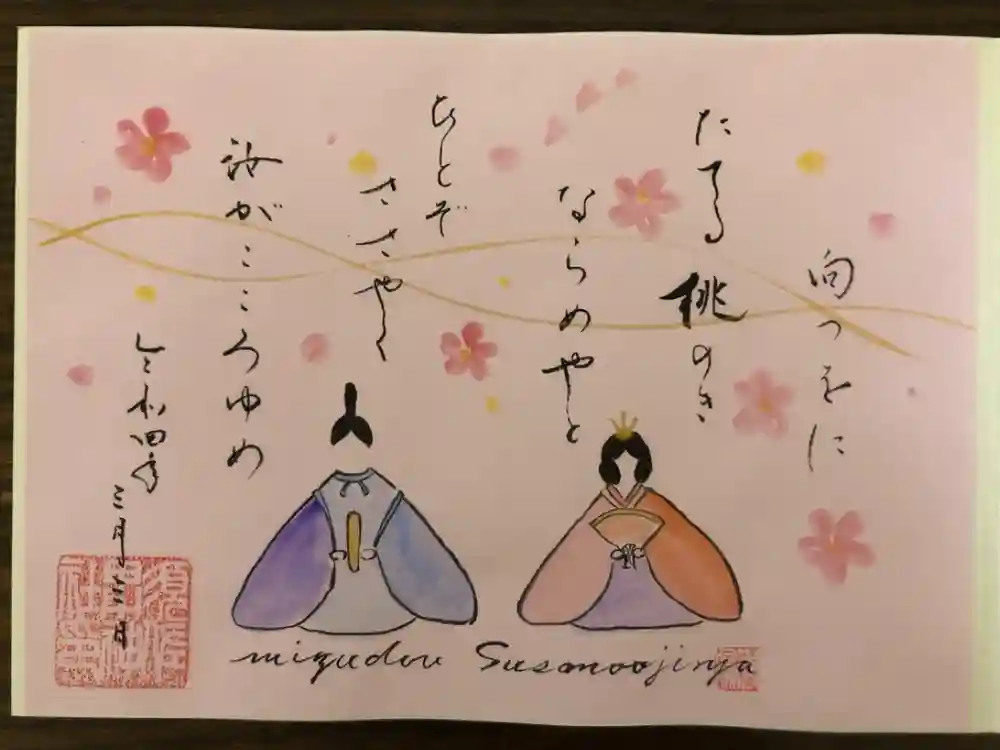 向つをに
たてる桃のき
ならめやと
ひとぞ
ささやく
汝がこころゆめ
令和四年 三月三日
mizudou Susanoojinja